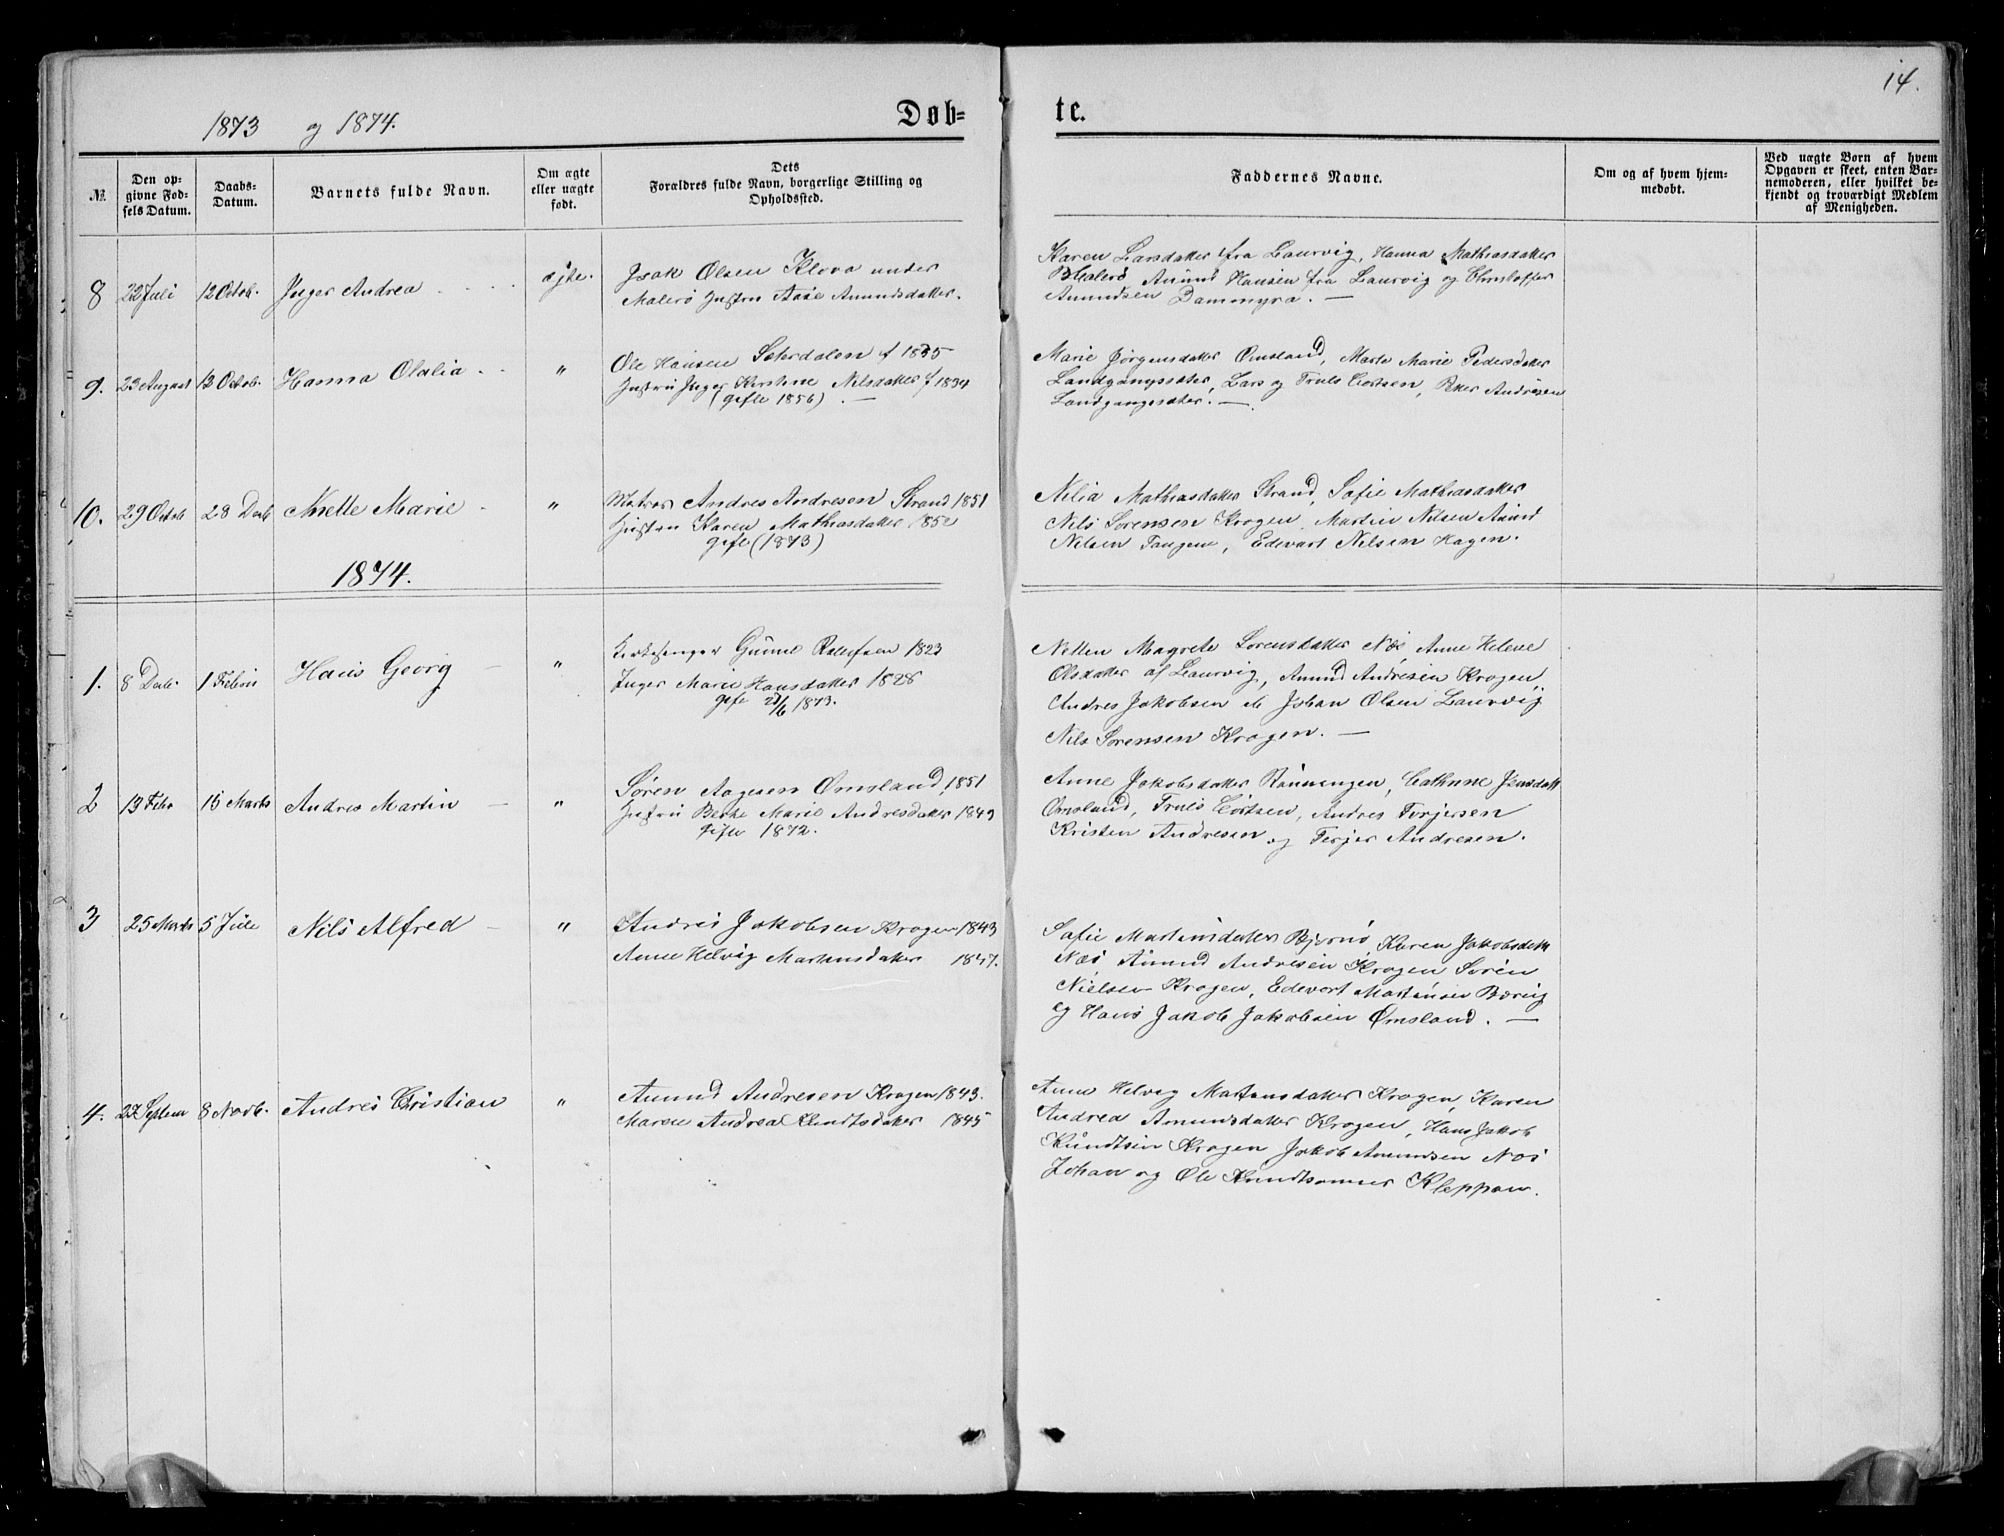 14.
1873 og 1874.
Døb=
te.
№.
Den op-
givne Fød-
sels Datum.
Daabs-
Datum.
Barnets fulde Navn.
Om ægte
eller uægte
født.
Dets
Forældres fulde Navn, borgerlige Stilling og
Opholdssted.
Faddernes Navne.
Om og af hvem hjem-
medøbt.
Ved uægte Børn af hvem
Opgaven er skeet, enten Bar-
nemoderen, eller hvilket be-
kjendt og troværdigt Medlem
af Menigheden.
8 22 Juli 12 Octob. Inger Andrea
Isak Olsen Klova under
Malerö Justru Aase Amundsdatter.
Karen Larsdatter fra Laurvig, Hanna Mathiasdatter
Malerö Amund Hansen fra Laurvig og Christoffer
Amundsen Dammyra. —
9. 23 August 13 Octob. Hanna Olalia "
Ole Hansen Sæterdalen f 1835
Justru Inger Kirstine Nilsdatter f 1834
(gifte 1856) —
Marie Jørgensdatter Ømsland, Marte Marie Pedersdatter
Landgangssæter, Lars og Truls Eertsen, Peter Andresen
Landgangssæter. —
10. 29 Octob 28 Deb Nette Marie "
Matros Andres Andresen Strand 1851
Justru Karen Mathiasdatter 1852
Gifte (1873)
Nilia Mathiasdatter Strand, Sofie Mathiasdatter
Nils Sørensen Krogen, Martin Nilsen Amund
Nilsen Tangene, Edevart Nilsen Hagen.
1874.
1. 8 Deb. 1 Febri Hans Georg "
Kirkesanger Gunne Rolufsen 1823
Inger Marie Hansdatter 1828
gifte 21/6 1873.
Netten Magrete Sørensdatter Næs Anne Helene
Olsdatter af Laurvig, Amund Andresen Krogen,
Andres Jakobsen de Johan Olsen Laurvig
Nils Sørensen Krogen. —
2 13 Febr 15 Marts Andres Martin "
Søren Aagesen Ømsland, 1851
Justru Berte Marie Andresdatter 1849
Gifte 1872.
Anne Jakobsdatter Rønningen, Cathrine Jensdatt
Ømsland, Truls Eertsen, Andres Torjersen
Kristen Andresen og Terjer Andresen.
3 25 Marts 5 Jule Nils Alfred "
Andres Jakobsen Krogen 1843
Anne Helvig Martinsdatter 1847.
Sofie Martinsdatter Bjørnø, Karen Jakobsdatt
Næs, Amund Andresen Krogen Søren
Nielsen Krogen, Edevart Martinsen Bæring
og Hans Jakob Jakobsen Ømsland. —
4. 27 Septem 8 Novb. Andres Christian "
Amund Andresen Krogen 1843.
Maren Andrea Knudtsdatter 1845
Anne Helvig Martinsdatter Krogen, Karen
Andrea Amundsdatter Krogen, Hans Jakob
Knudtsen Krogen Jakob Amundsen Næs
Johan og Ole Knudtsønner Kleppan.